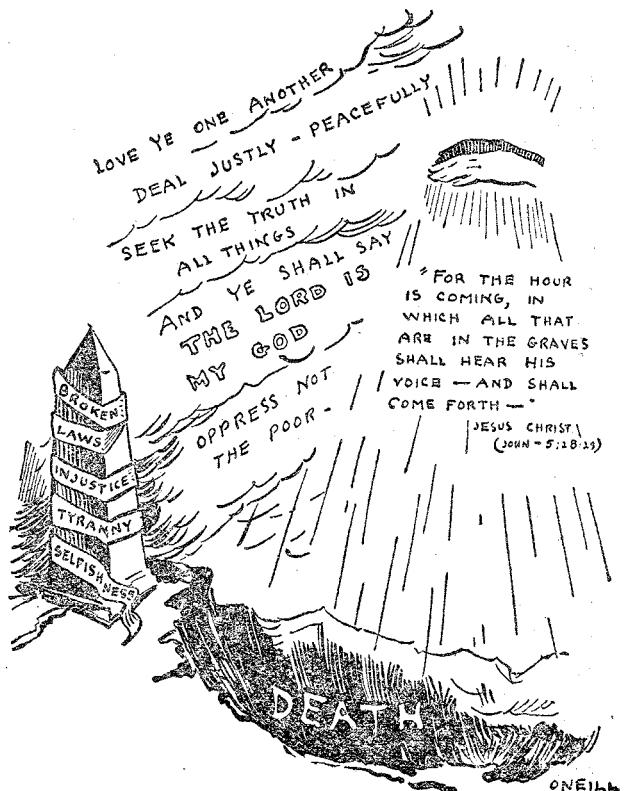 LOVE YE ONE ANOTHER
DEAL JUSTLY - PEACEFULLY
SEEK THE TRUTH IN
ALL THINGS
AND YE SHALL SAY
THE LORD IS
MY GOD
OPPRESS NOT
THE POOR -
"FOR THE HOUR
IS COMING, IN
WHICH ALL THAT
ARE IN THE GRAVES
SHALL HEAR HIS
VOICE — AND SHALL
COME FORTH — "
JESUS CHRIST
(JOHN - 5:28-29)
BROKEN
LAWS
INJUSTICE
TYRANNY
SELFISH
NESS
DEATH
ONEILL